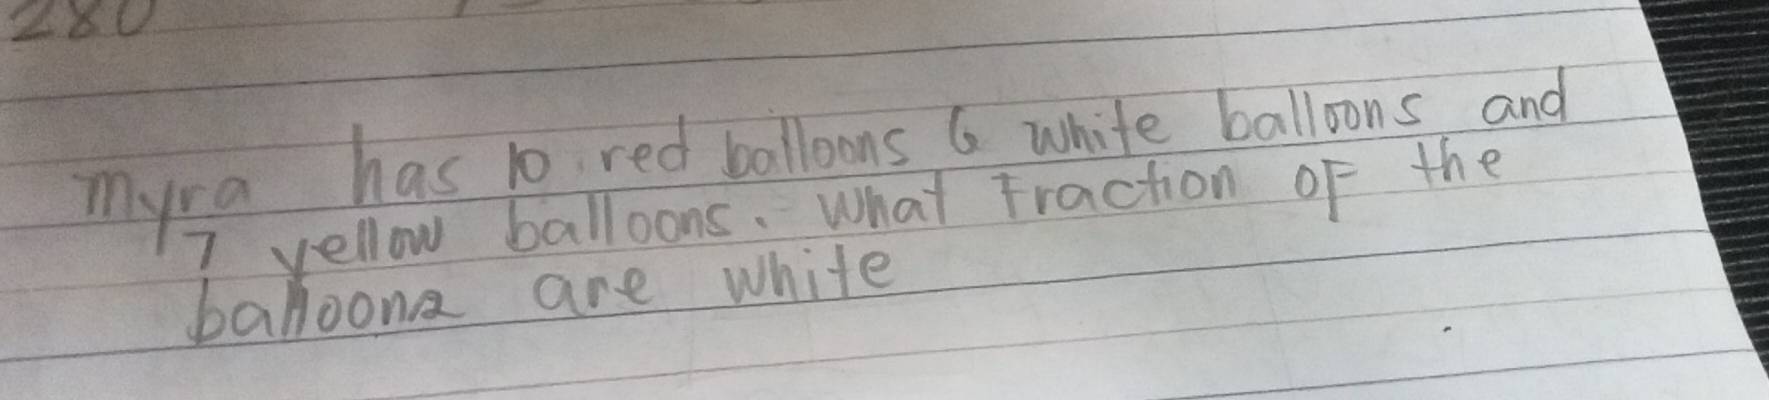 280
Myra has 10 red balloons 6 white balloons and
7 yellow balloons. What Fraction OF the
balloons are white